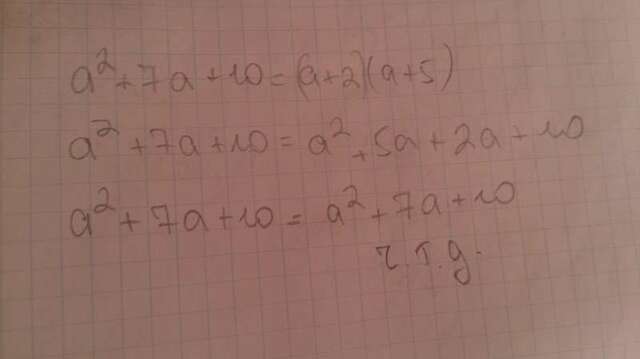 a²+7a+10=(a+2)(a+5)
a²+7a+10=a²+5a+2a+10
a²+7a+10=a²+7a+10
ч.т.д.